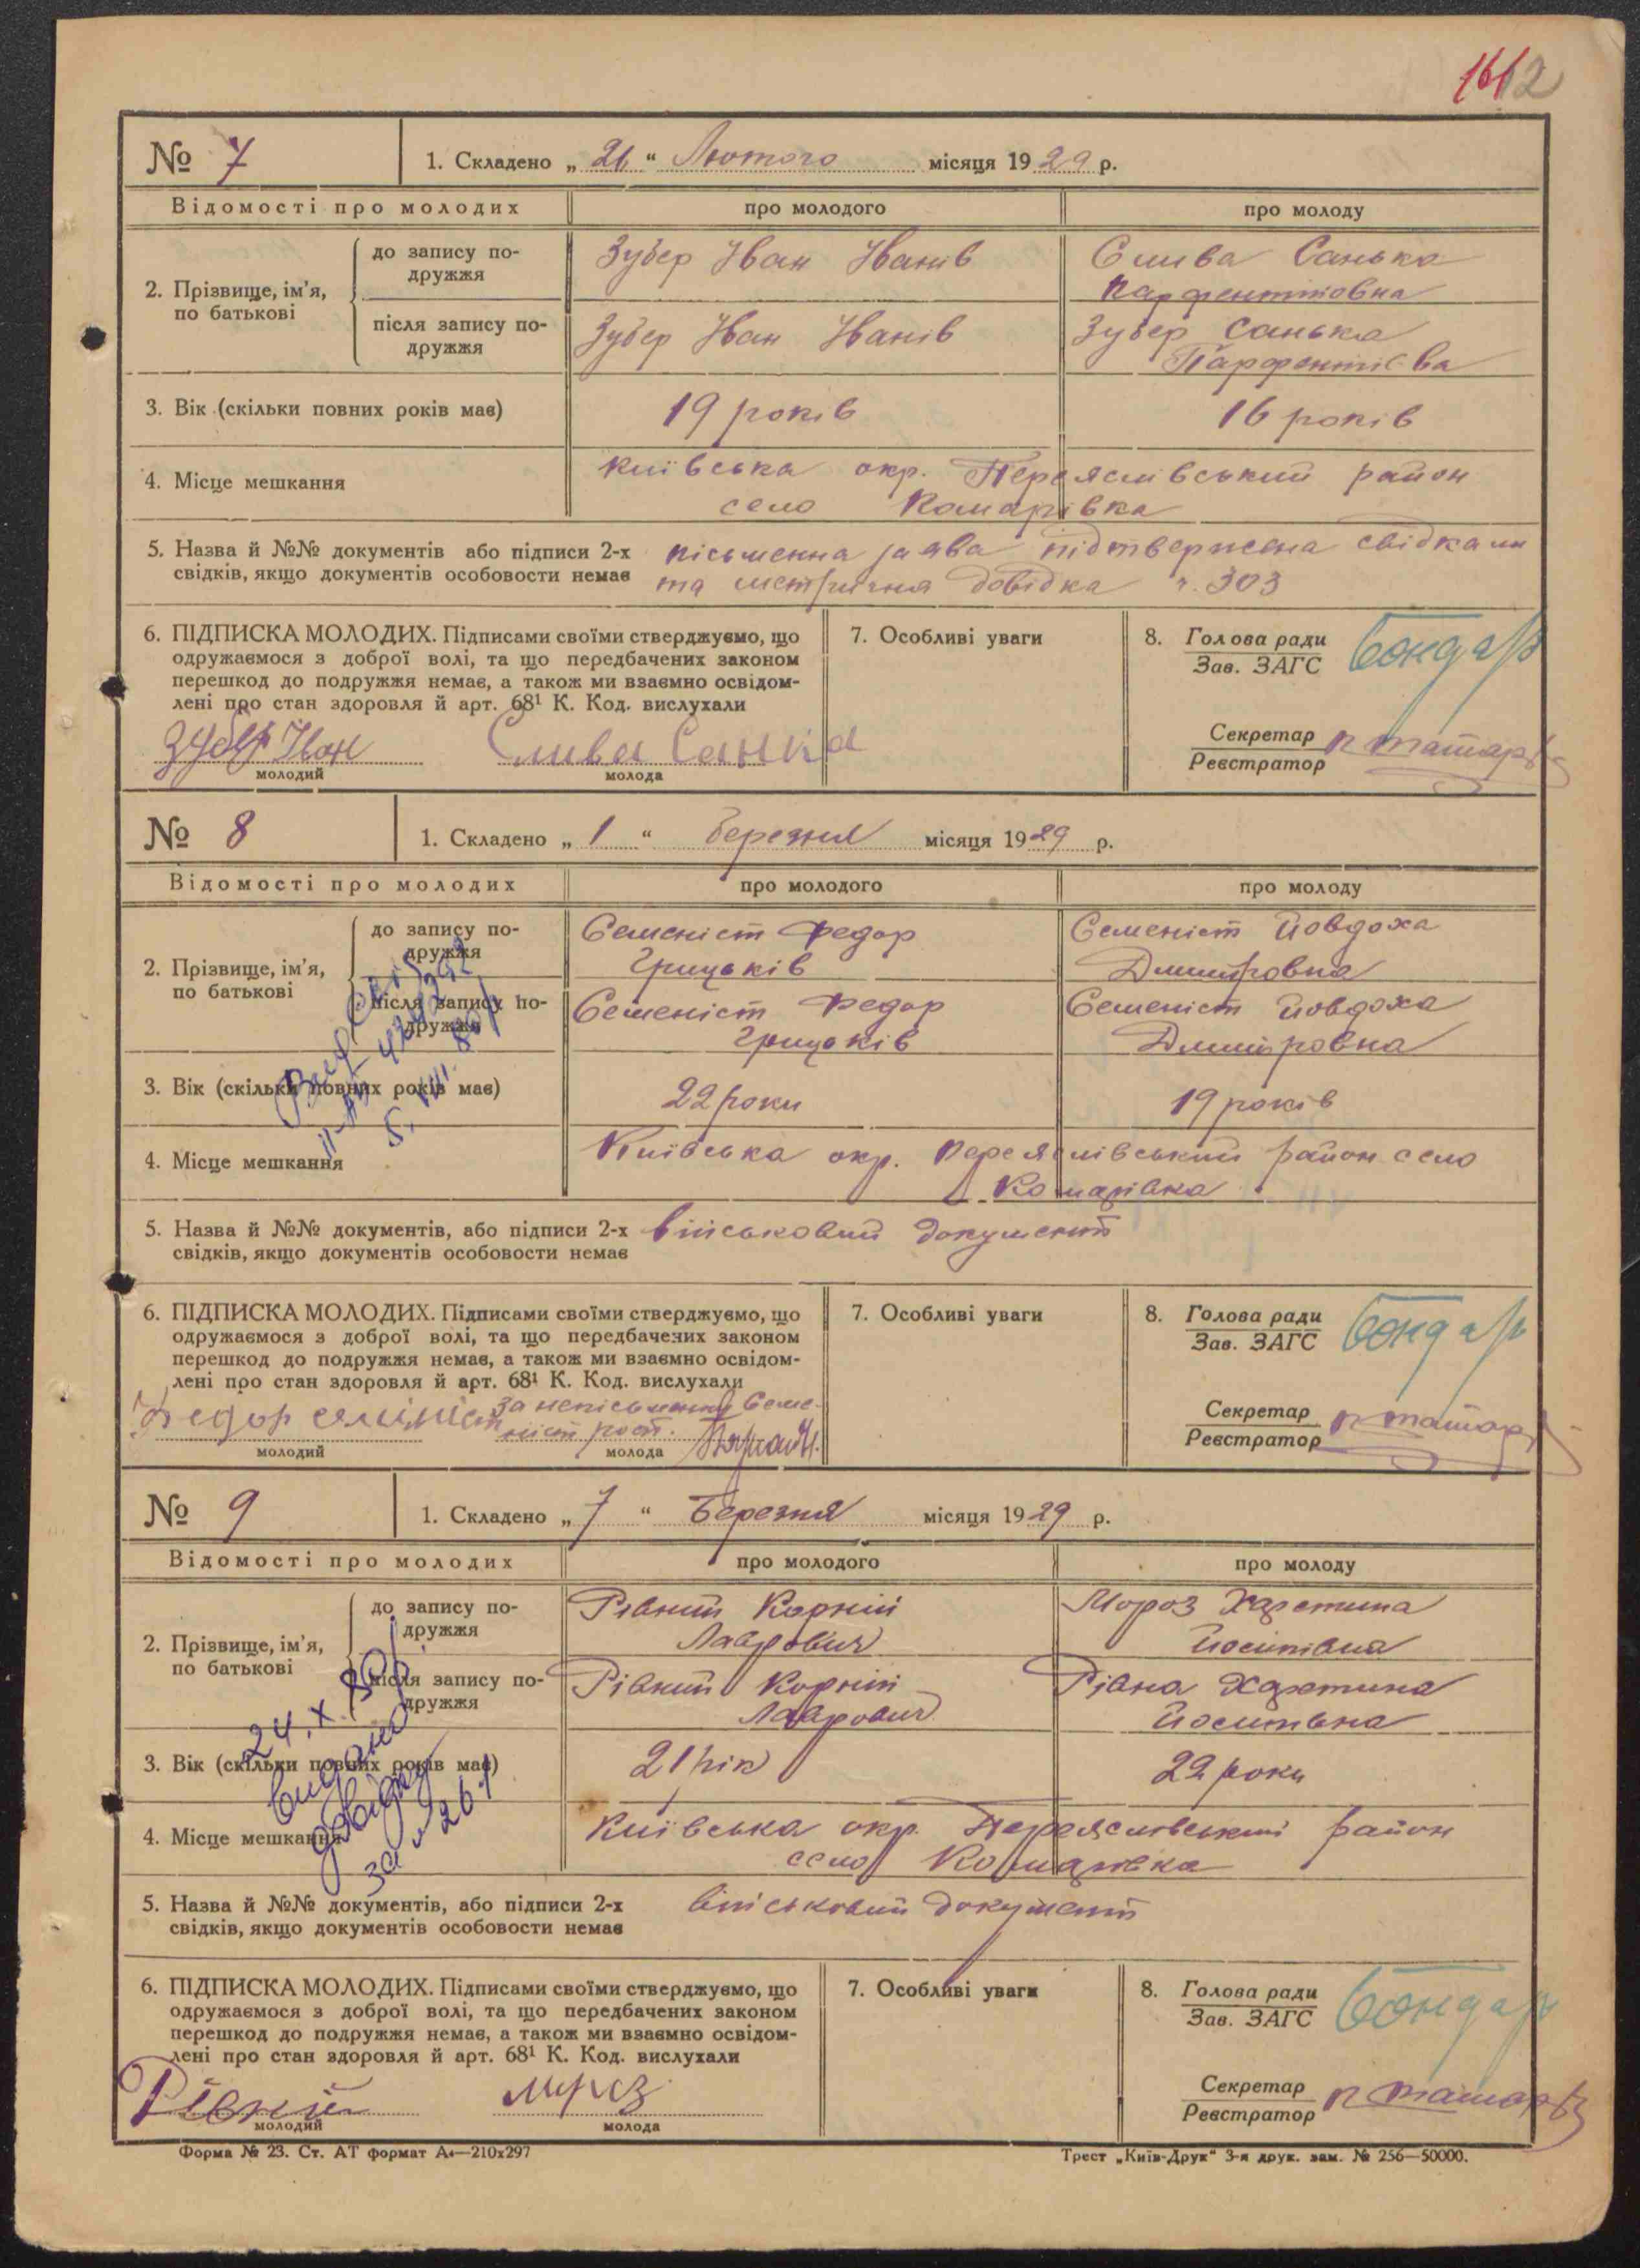 № 7
1. Складено „ 26 “ Лютого місяця 1929 р.
Відомості про молодих
про молодого
про молоду
2. Прізвище, ім’я, по батькові
до запису подружжя
Зубер Іван Іванів
Слива Санька
Парфентіовна
після запису подружжя
Зубер Іван Іванів
Зубер Санька
Парфентіева
3. Вік (скільки повних років має)
19 років
16 років
4. Місце мешкання
Київська окр. Переяслівський район
село Комарівка
5. Назва й №№ документів або підписи 2-х
свідків, якщо документів особовости немає
пісьменна заява підтвержена свідками
та метрична довідка ч. 303
6. ПІДПИСКА МОЛОДИХ. Підписами своїми стверджуємо, що
одружаємося з доброї волі, та що передбачених законом
перешкод до подружжя немає, а також ми взаємно освідом-
лені про стан здоровля й арт. 68¹ К. Код. вислухали
Зубер Іван
молодий
Слива Санка
молода
7. Особливі уваги
8. Голова ради
Зав. ЗАГС
Бондар
Секретар
Реєстратор
№ 8
1. Складено „ 1 “ березня місяця 1929 р.
Відомості про молодих
про молодого
про молоду
2. Прізвище, ім’я, по батькові
до запису подружжя
Семеніст Федор
Грицьків
Семеніст Йовдоха
Дмитровна
після запису подружжя
Семеніст Федор
Грицьків
Семеніст Йовдоха
Дмитровна
3. Вік (скільки повних років має)
22 роки
19 років
4. Місце мешкання
Київська окр. Переяслівський район село
Комарівка
5. Назва й №№ документів, або підписи 2-х
свідків, якщо документів особовости немає
військовий документ
6. ПІДПИСКА МОЛОДИХ. Підписами своїми стверджуємо, що
одружаємося з доброї волі, та що передбачених законом
перешкод до подружжя немає, а також ми взаємно освідом-
лені про стан здоровля й арт. 68¹ К. Код. вислухали
Федор
молодий
за непісьменну Семе-
ніст рост.
молода
7. Особливі уваги
8. Голова ради
Зав. ЗАГС
Бондар
Секретар
Реєстратор
№ 9
1. Складено „ 7 “ Березня місяця 1929 р.
Відомості про молодих
про молодого
про молоду
2. Прізвище, ім’я, по батькові
до запису подружжя
Рівний Корній
Лаврович
Мороз Харстина
Йосипівна
після запису подружжя
Рівний Корній
Лаврович
Рівна Харстина
Йосипівна
24.X.80
видано
довідку
за № 261
3. Вік (скільки повних років має)
21 рік
22 роки
4. Місце мешкання
Київська окр. Переяслівський район
село Комарівка
5. Назва й №№ документів, або підписи 2-х
свідків, якщо документів особовости немає
військовий документ
6. ПІДПИСКА МОЛОДИХ. Підписами своїми стверджуємо, що
одружаємося з доброї волі, та що передбачених законом
перешкод до подружжя немає, а також ми взаємно освідом-
лені про стан здоровля й арт. 68¹ К. Код. вислухали
Рівний
молодий
молода
7. Особливі уваги
8. Голова ради
Зав. ЗАГС
Бондар
Секретар
Реєстратор
Форма № 23. Ст. АТ формат А4—210х297
Трест „Київ-Друк“ 3-я друк. зам. № 256—50000.